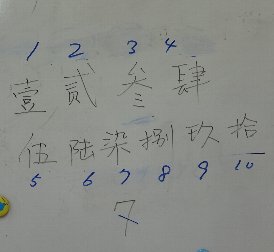 1 2 3 4
壹 贰 叁 肆
伍 陆 柒 捌 玖 拾
5 6 7 8 9 10
7